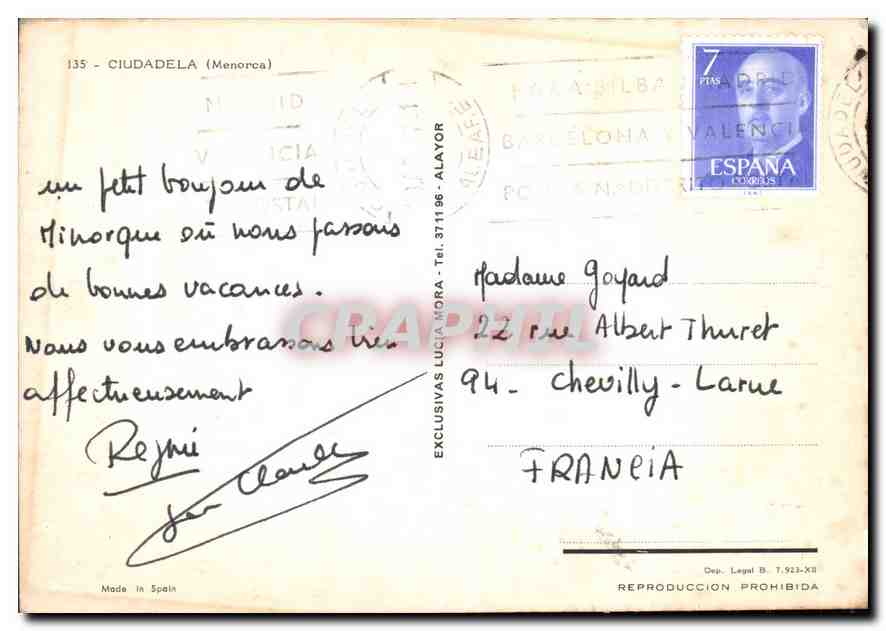 135 - CIUDADELA (Menorca)
un petit bonjour de
Minorque où nous passons
de bonnes vacances.
Nous vous embrassons bien
affectueusement
Jean Claude
EXCLUSIVAS LUCIA MORA - Tel. 37 11 96 - ALAYOR
7
PTAS
ESPAÑA
CORREOS
MADRID
BARCELONA Y VALENCIA
CIUDADEL
BALEARE
Madame Goyard
22 rue Albert Thuret
94 - Chevilly-Larue
FRANCIA
CRAPHIL
Made in Spain
Dep. Legal B. 7.923-XII
REPRODUCCION PROHIBIDA